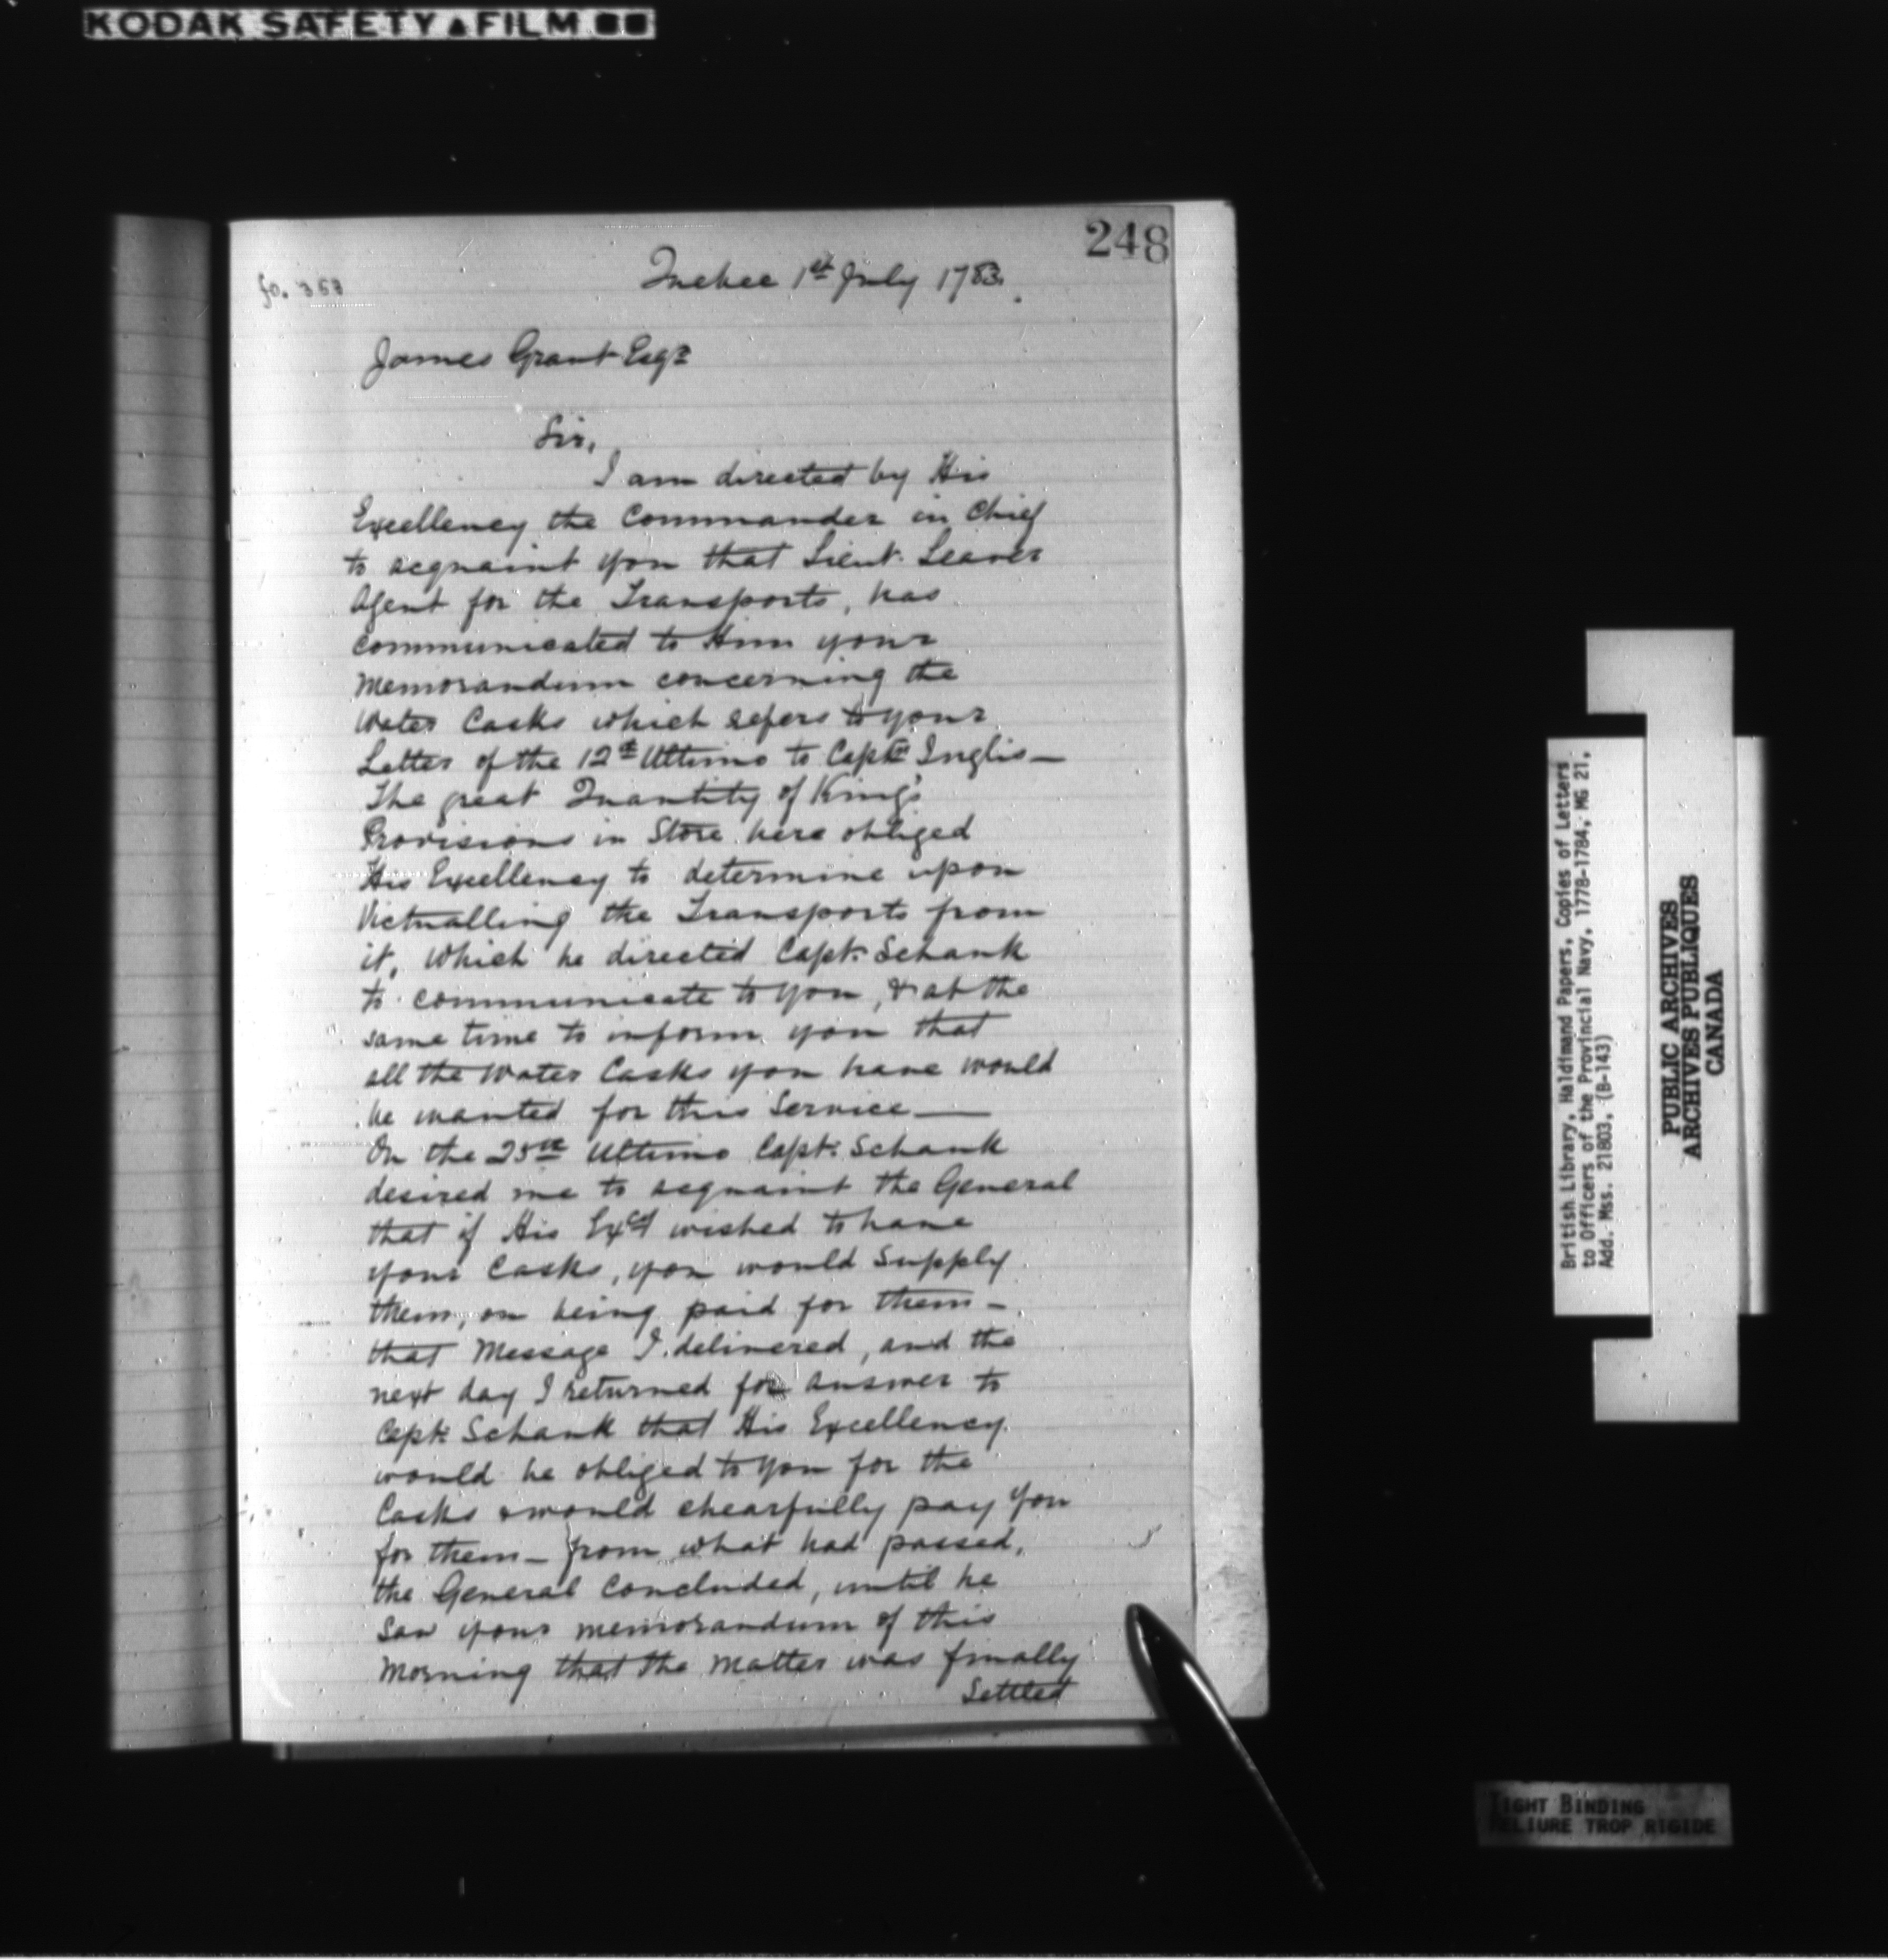 KODAK SAFETY ▲ FILM ■■
248
fo. 353
Quebec 1st July 1783.
James Grant Esqr
Sir,
I am directed by His
Excellency the Commander in Chief
to acquaint you that Lieut. Leaver
Agent for the Transports, has
communicated to Him your
Memorandum concerning the
Water Casks which refers to your
Letter of the 12th Ultimo to Captn Inglis—
The great Quantity of King's
Provisions in Store here obliged
His Excellency to determine upon
Victualling the Transports from
it, Which he directed Capt. Schank
to communicate to you, & at the
same time to inform you that
all the Water Casks you have would
be wanted for this Service—
On the 25th Ultimo Capt. Schank
desired me to acquaint the General
that if His Excy wished to have
your Casks, you would Supply
them, on being paid for them—
that Message I delivered, and the
next day I returned for answer to
Capt. Schank that His Excellency
would be obliged to you for the
Casks & would chearfully pay you
for them— from what had passed,
the General Concluded, until he
saw your memorandum of this
Morning that the Matter was finally
Settled
British Library, Haldimand Papers, Copies of Letters
to Officers of the Provincial Navy, 1778-1784, MG 21,
Add. Mss. 21803, (B-143)
PUBLIC ARCHIVES
ARCHIVES PUBLIQUES
CANADA
TIGHT BINDING
RELIURE TROP RIGIDE